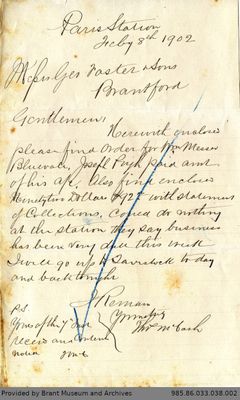 Paris Station
Feby 8th 1902
Messrs Geo Foster & Sons
Brantford
Gentlemen
Herewith enclosed
please find Order for Wm Messer
Bluevale, Joseph Pugh paid amt
of his a/c. Also find enclosed
Dollars $92 with statement
of Collections, Could do nothing
at the station they say business
has been very dull this week
I will go up to Tavistock to day
and back tonight
I Remain
P.S. Yours truly
Yours of the 7 Inst Thos McCash
received and contents
noted TMC
Provided by Brant Museum and Archives
985.86.033.038.002